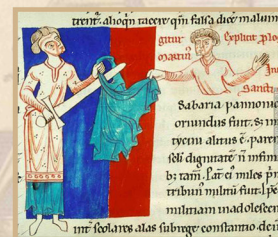 trent. alioqn tacere qm falsa dice malum
gitur
martin
Explicit plog
Sancti
Sabaria pannonio
oriundus fuit. s; in
tycini altus e. paren
seli dignitate n infim
b; tam. Pat ei miles p
tribun militu fuit. Ipe
militiam in adolescen
int scolares alas sub rege constantio. de